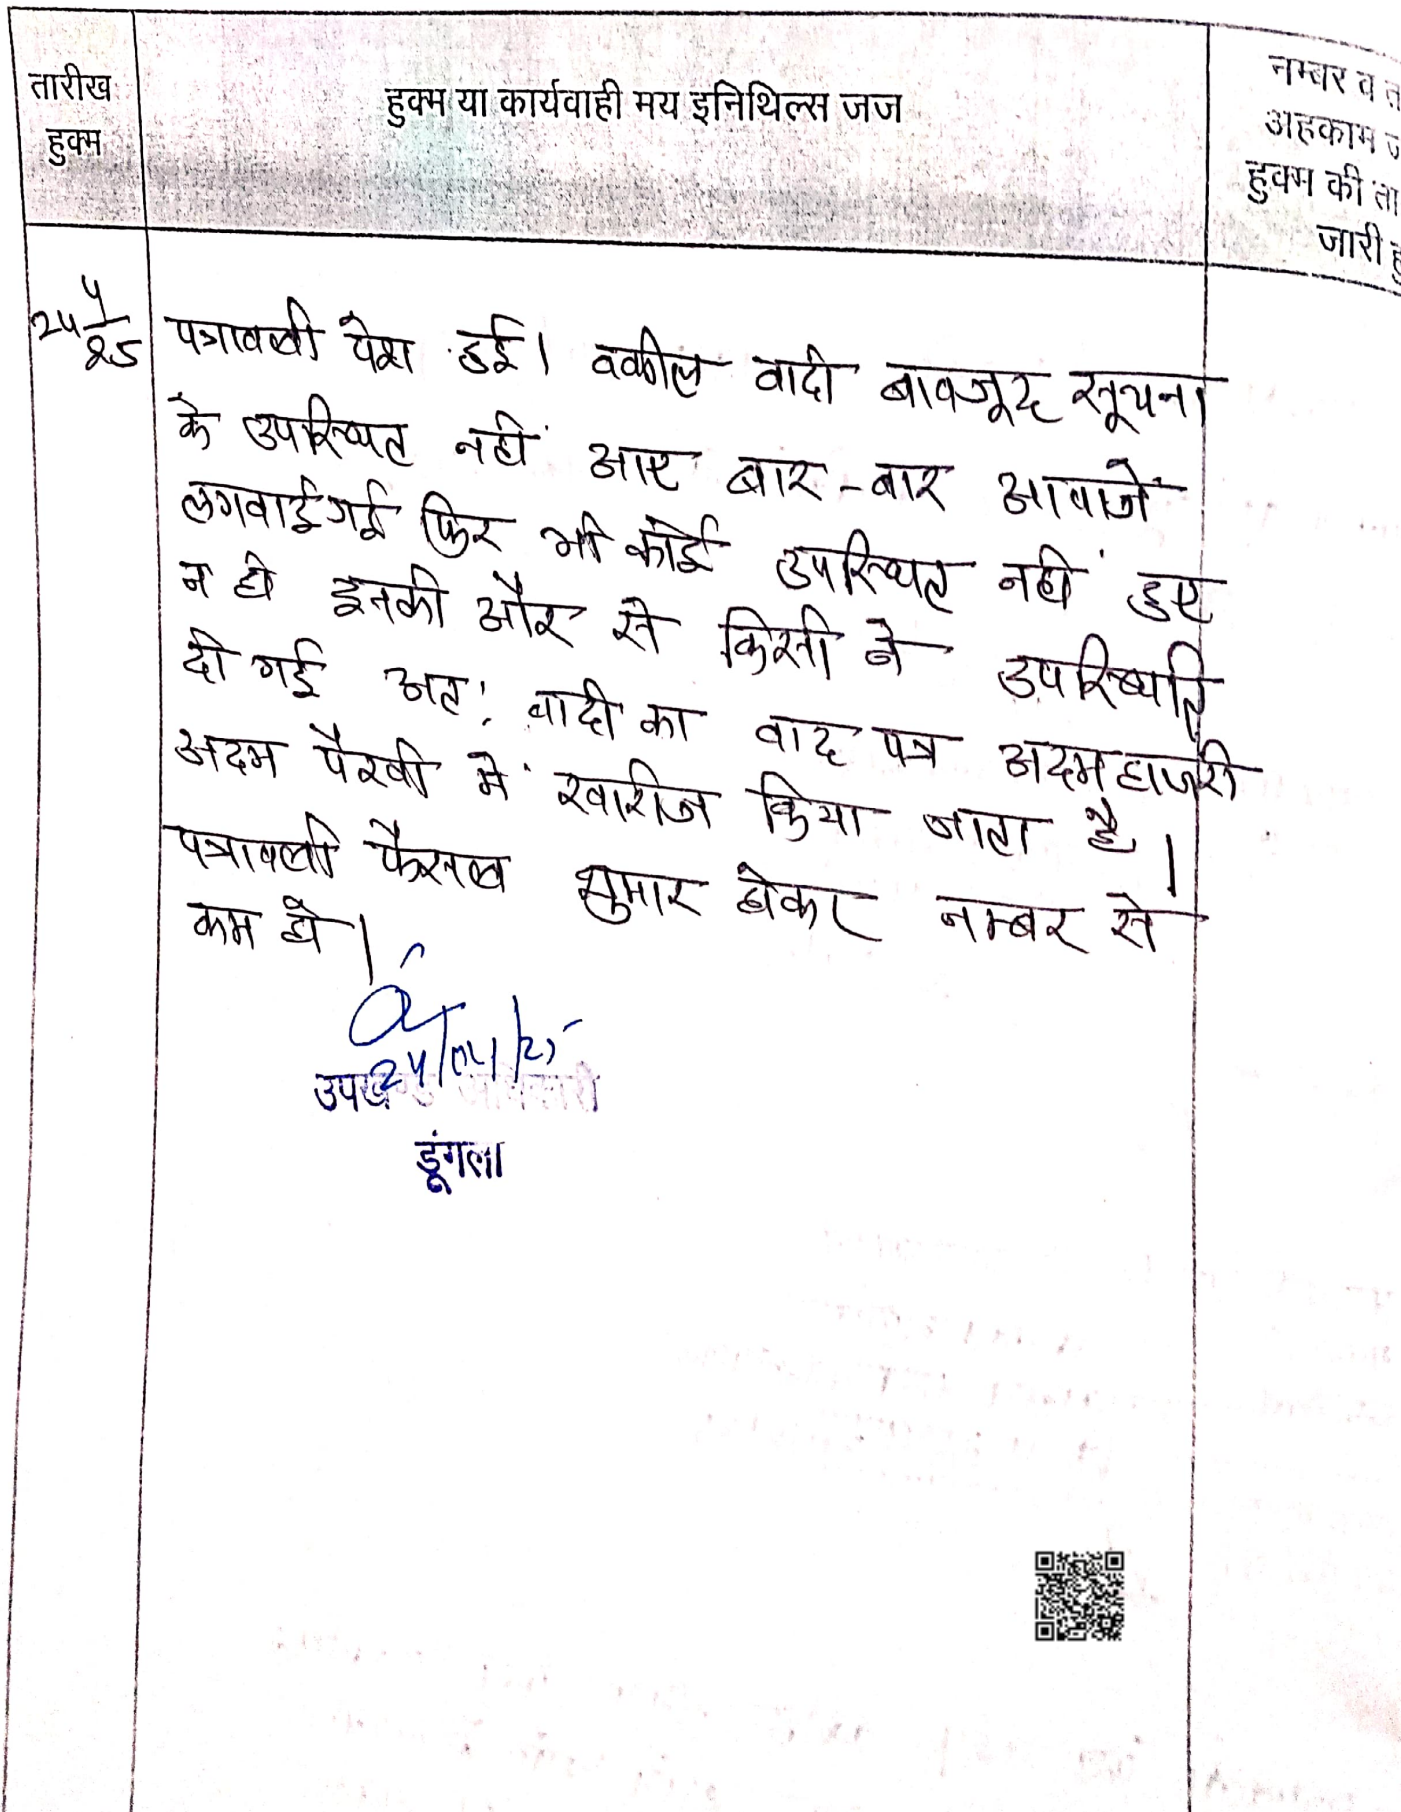 तारीख
हुक्म
हुक्म या कार्यवाही मय इनिथिल्स जज
नम्बर व त
अहकाम ज
हुक्म की ता
जारी हु
24 4/25
पत्रावली पेश हुई। वकील वादी बावजूद सूचना
के उपस्थित नहीं आए बार-बार आवाजें
लगवाई गई फिर भी कोई उपस्थित नहीं हुए
न ही इनकी और से किसी ने उपस्थिति
दी गई अत: वादी का वाद पत्र अदम हाजरी
अदम पैरवी में खारीज किया जाता है।
पत्रावली फैसल शुमार होकर नम्बर से
कम हो।
24/04/25
उपखण्ड अधिकारी
डूंगला